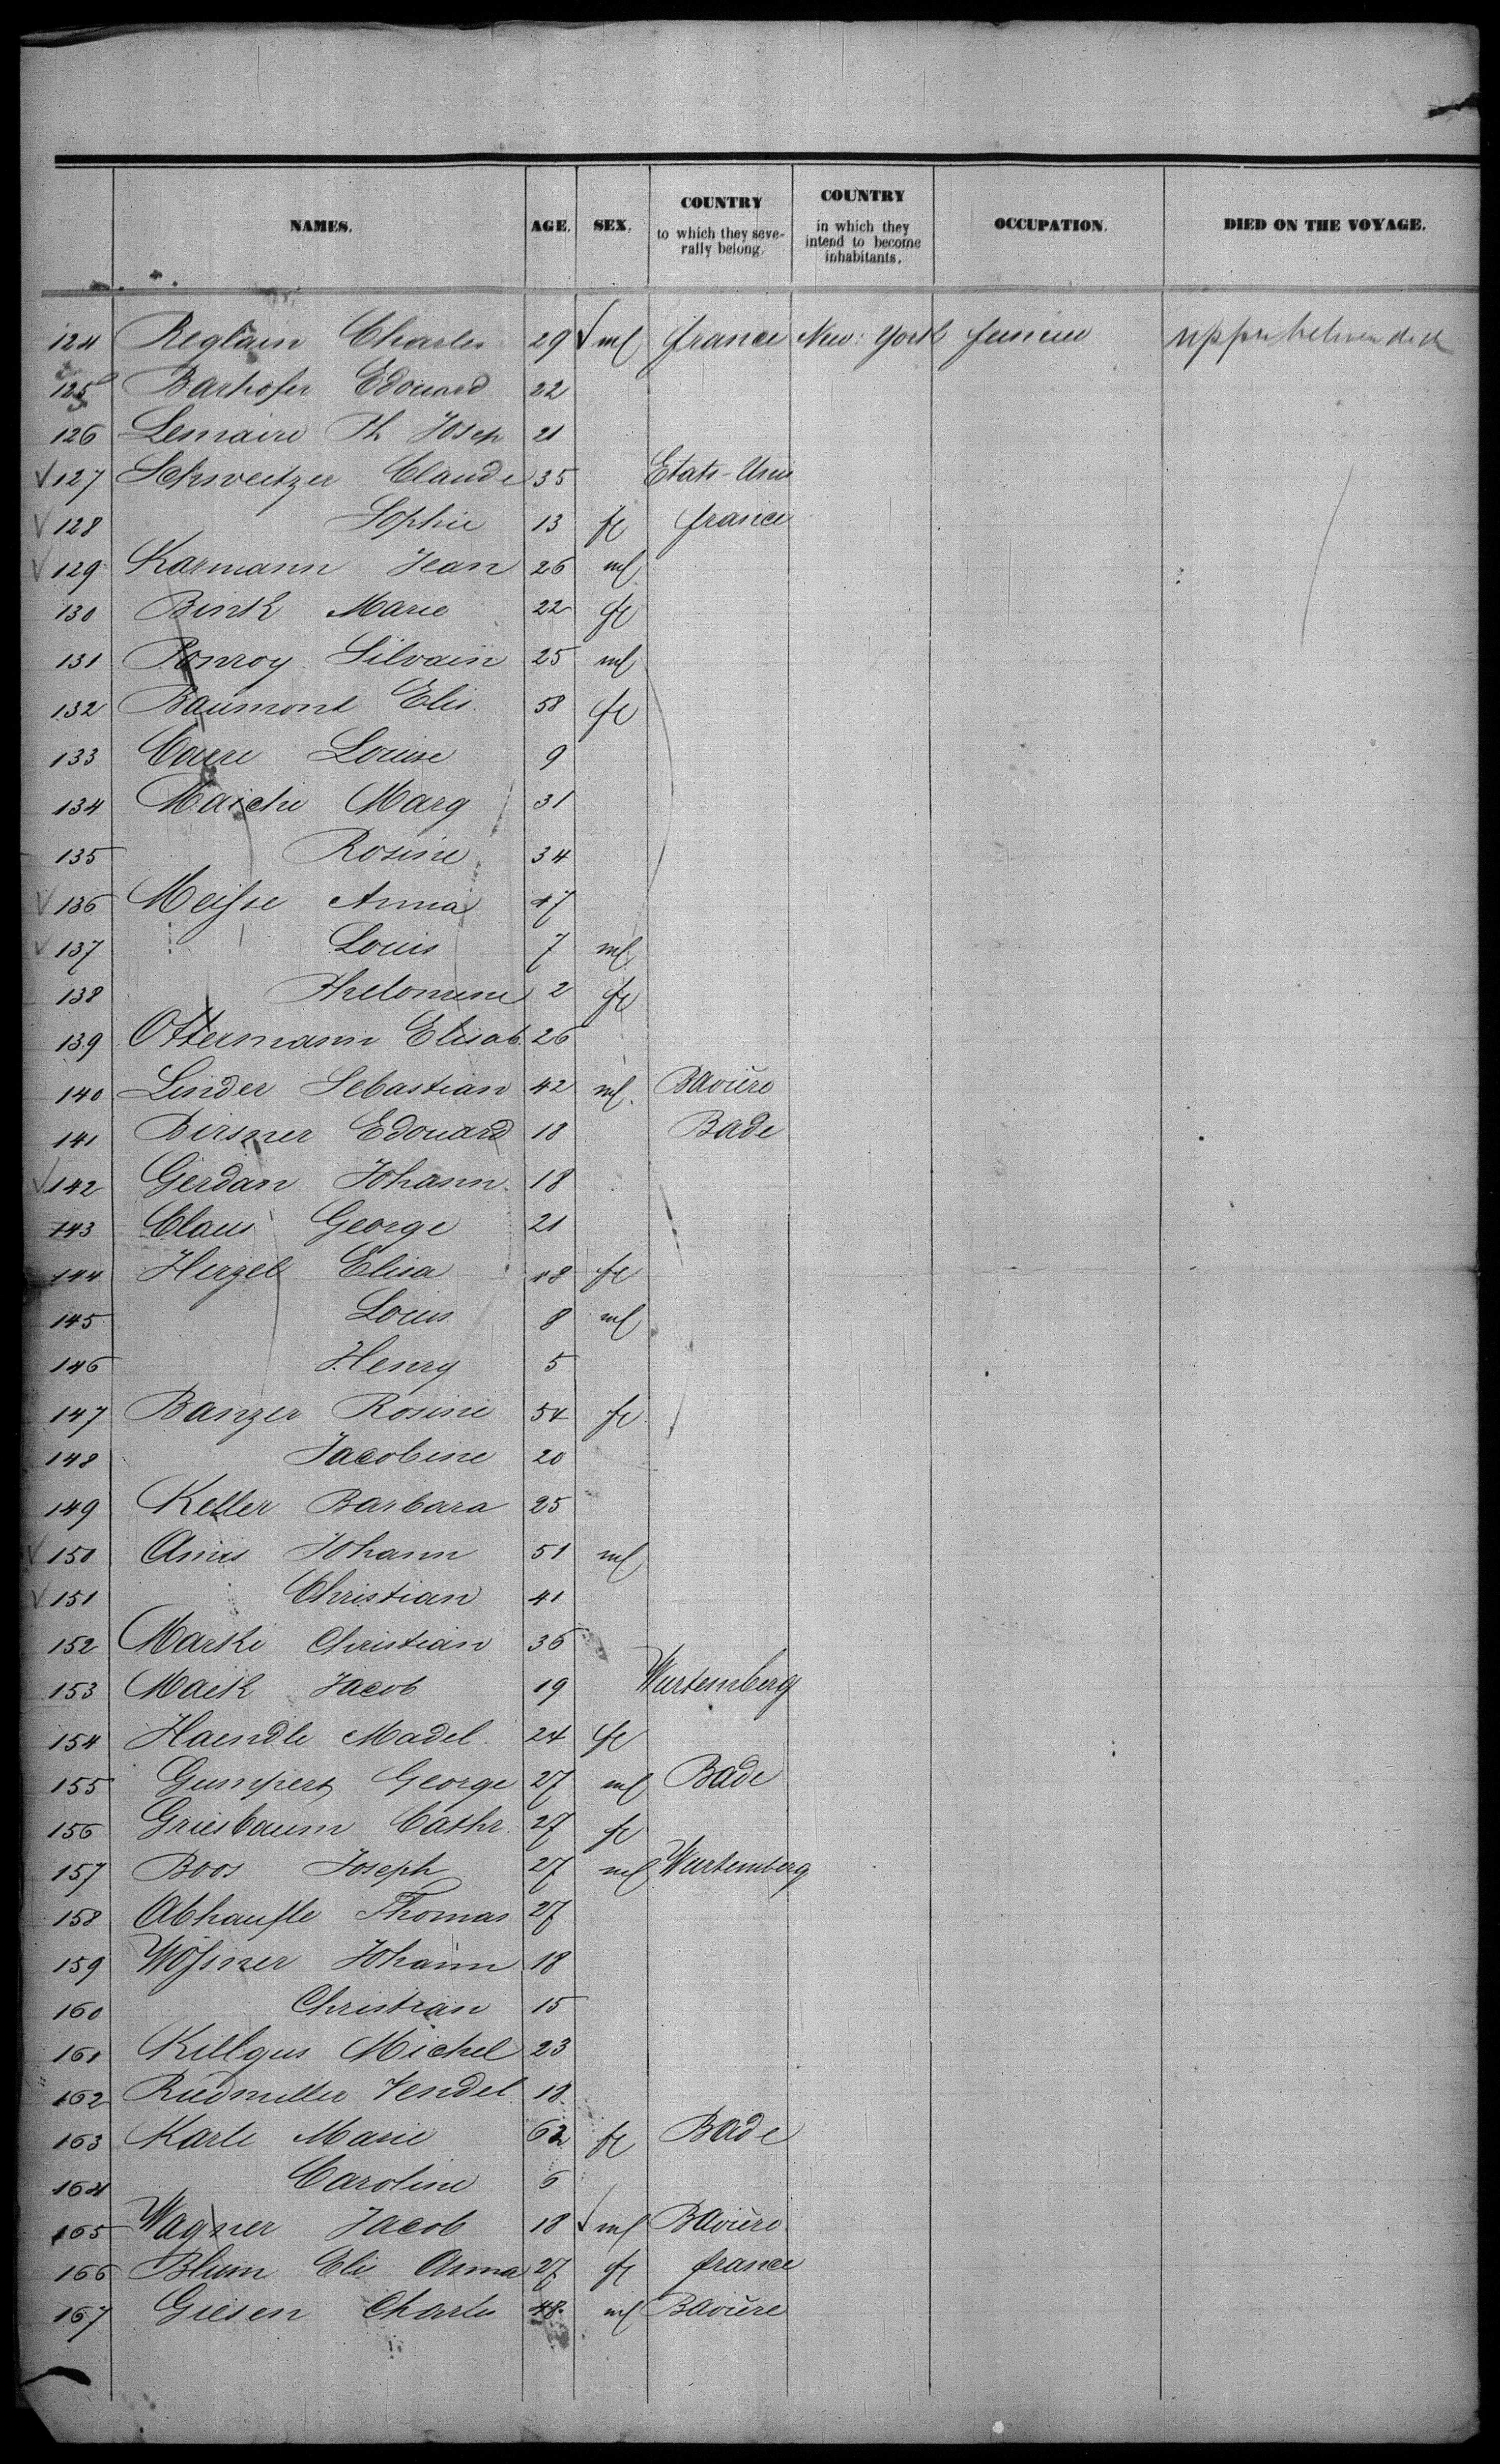 NAMES. AGE. SEX. COUNTRY to which they severally belong. COUNTRY in which they intend to become inhabitants. OCCUPATION. DIED ON THE VOYAGE.
124 Reglain Charles 29 ml france New-York upper between deck
125 Barhofer Edouard 22
126 Lemaire Th Josep 21
127 Schweitzer Claude 35 Etats-Unis
128 Sophie 13 fe france
129 Karmann Jean 26 ml
130 Bink Marie 22 fe
131 Ponroy Silvain 25 ml
132 Baumont Elis. 58 fe
133 Louise 9
134 Maiche Marg 31
135 Rosine 34
136 Meisse Anna 17
137 Louis 7 ml
138 Philomene 2 fe
139 Ottermann Elisab. 26
140 Linder Sebastian 42 ml. Bavière
141 Birsner Edouard 18 Bade
142 Gerdan Johann 18
143 Claus George 21
144 Herzel Elisa 18 fe
145 Louis 8 ml
146 Henry 5
147 Banzer Rosine 54 fe
148 Jacobine 20
149 Keller Barbara 25
150 Johann 51 ml
151 Christian 41
152 Marki Christian 36
153 Maik Jacob 19 Wurtemberg
154 Haendle Madel. 24 fe
155 Gumpert George 27 ml Bade
156 Griesbaum Cathr. 27 fe
157 Boos Joseph 27 ml Wurtemberg
158 Abhaufle Thomas 27
159 Wössner Johann 18
160 Christian 15
161 Killgus Michel 23
162 Riedmiller Vendel 18
163 Karle Marie 62 fe Bade
164 Caroline 6
165 Wagner Jacob 18 ml Bavière
166 Blum Elis Anna 27 fe france
167 Giesen Charles 48 ml Bavière